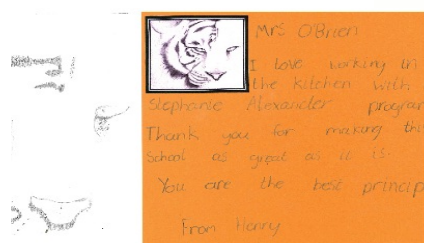 Mrs O'Brien
I love working in
the kitchen with
Stephanie Alexander program
Thank you for making this
School as great as it is.
You are the best princip
From Henry